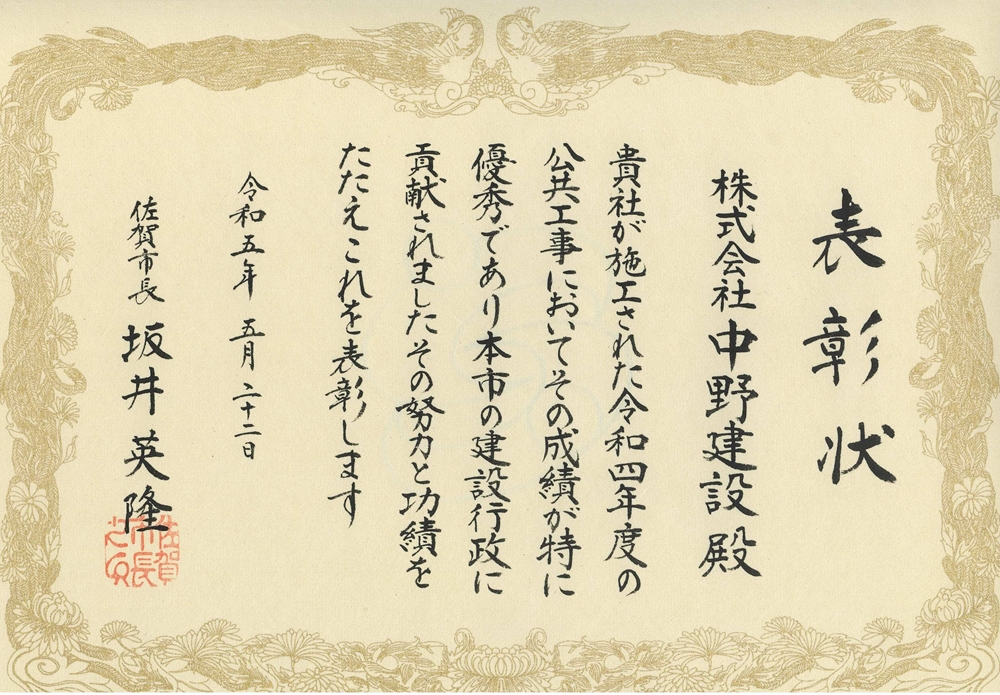 表彰状
株式会社中野建設殿
貴社が施工された令和四年度の
公共工事においてその成績が特に
優秀であり本市の建設行政に
貢献されましたその努力と功績を
たたえこれを表彰します
令和五年 五月 二十二日
佐賀市長 坂井英隆
佐賀
市長
之印